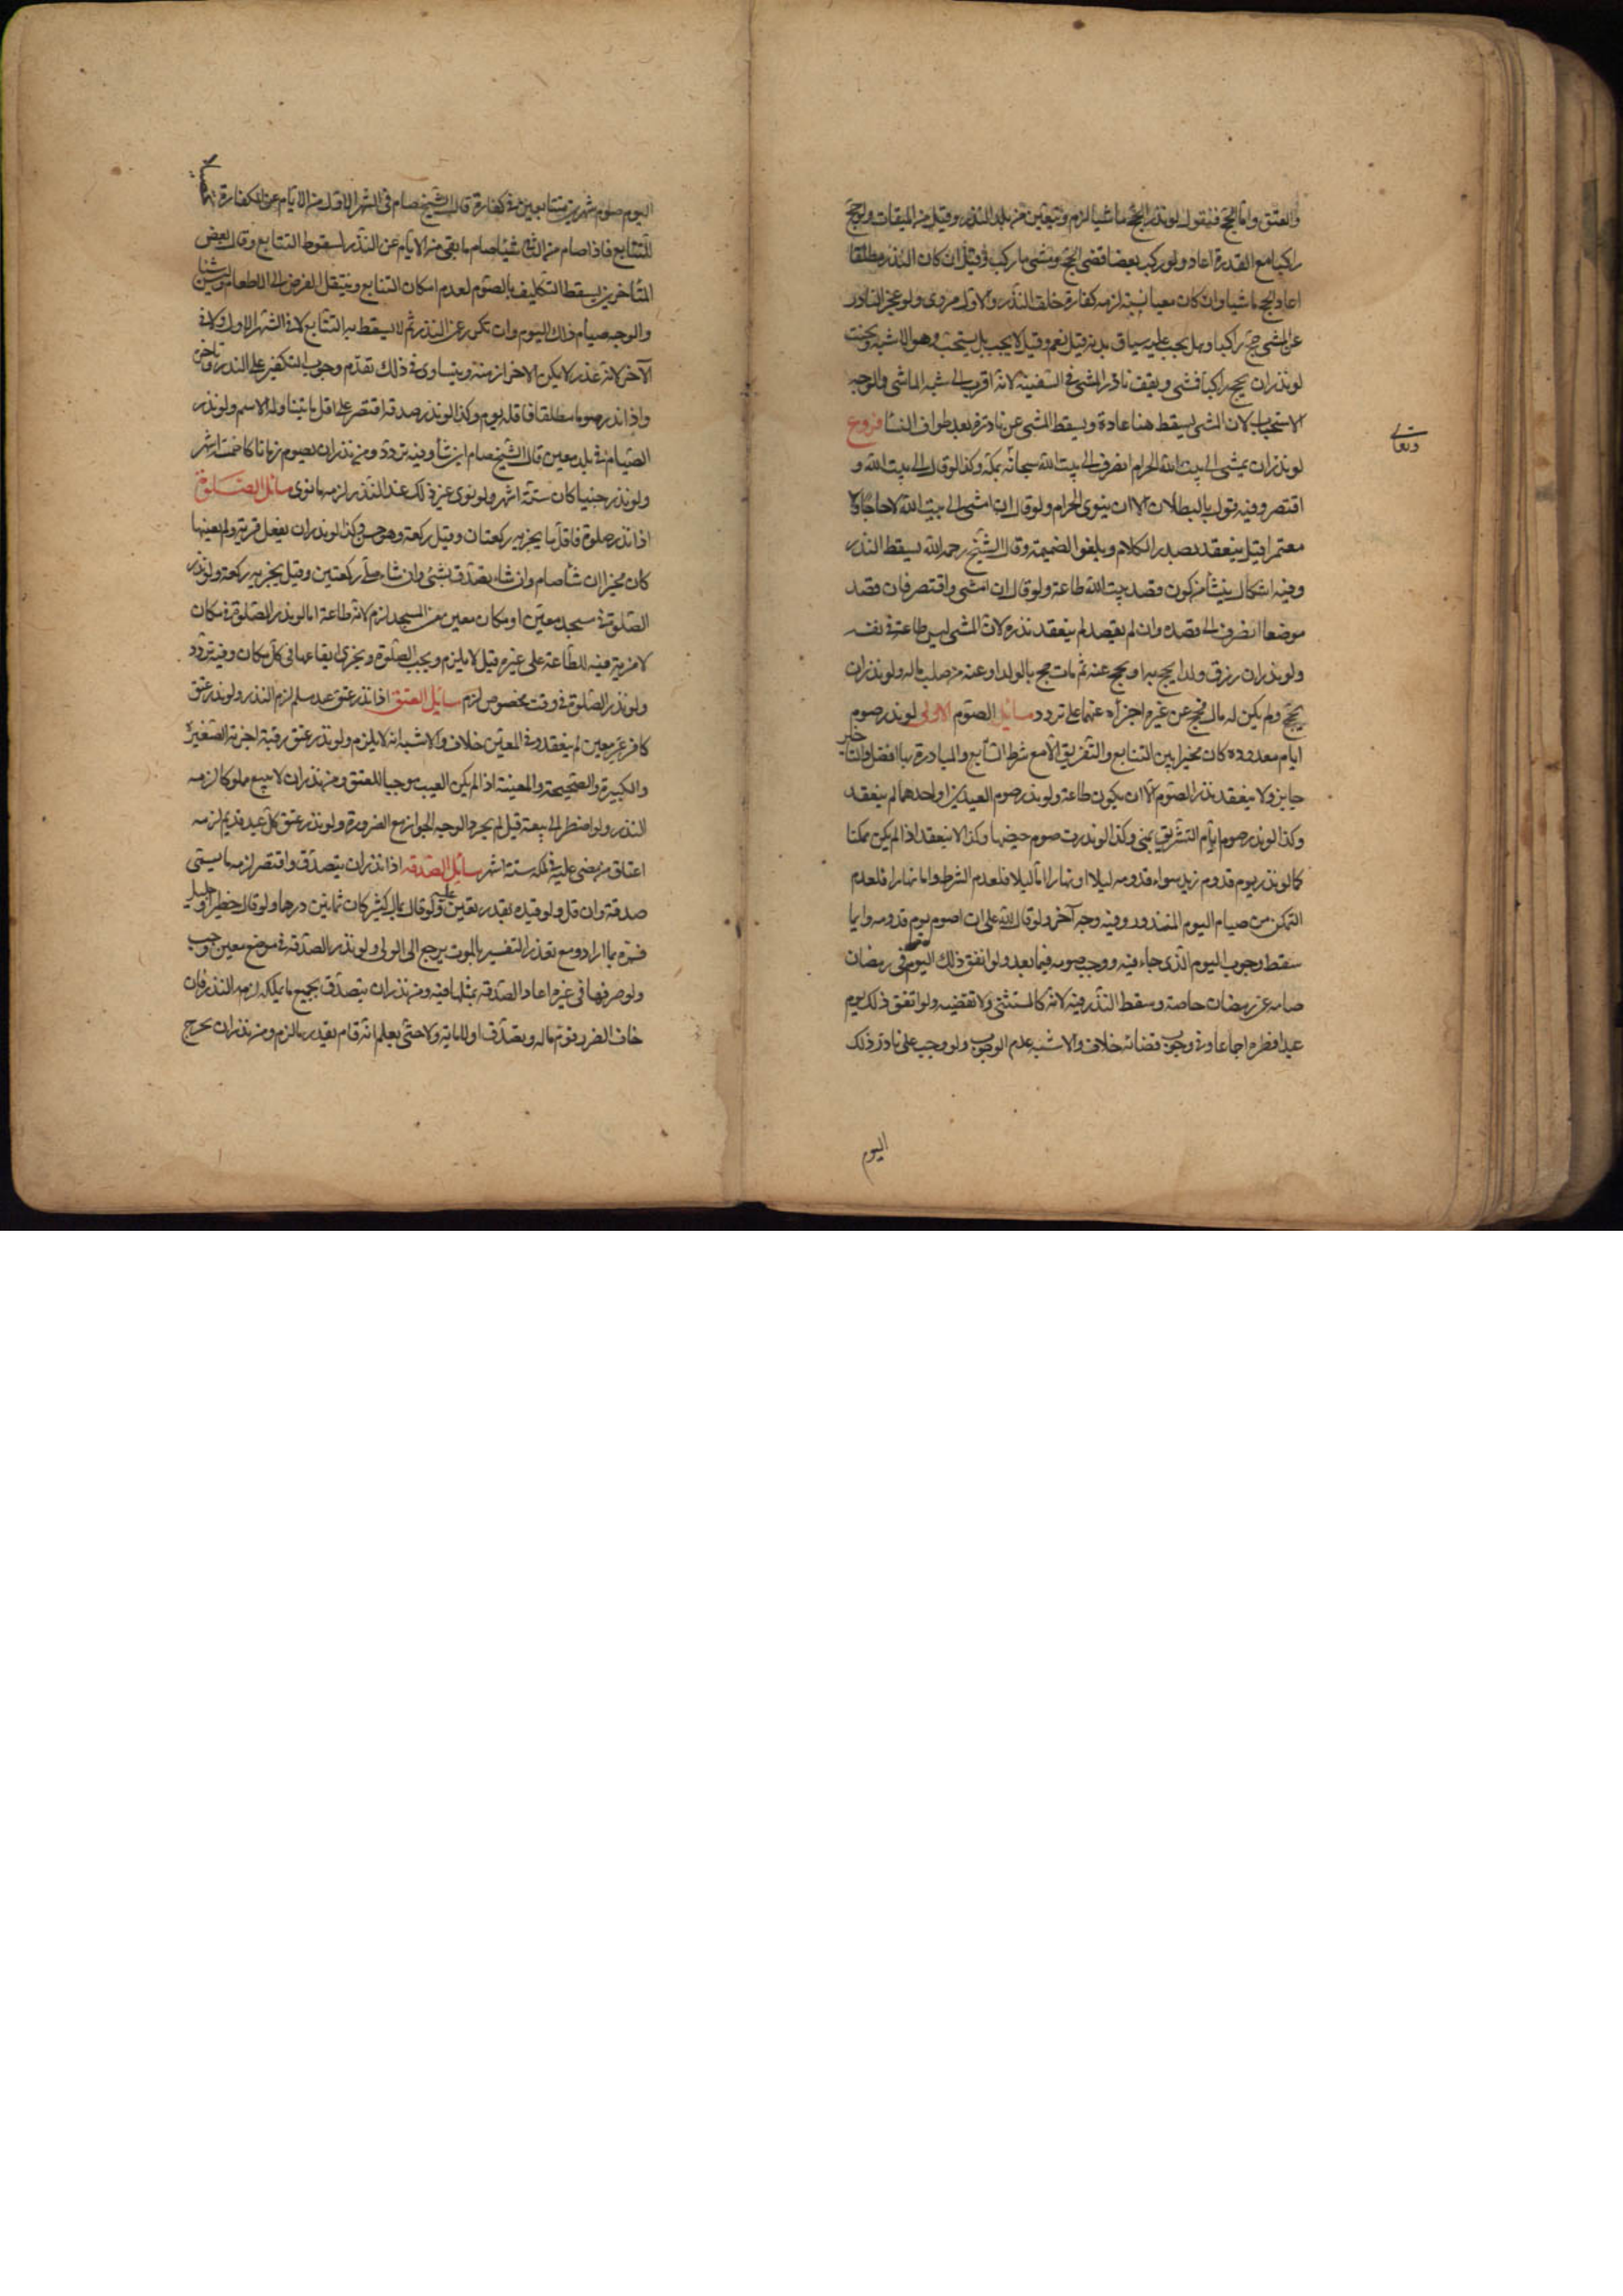 والعتق واما الحج فنقول لو نذر الحج ماشيا لزم ويتعين من بلد النذر وقيل من الميقات ولو حج
راكبا مع القدرة اعاد ولو ركب بعضا قضى الحج ومشى ما ركب وقيل ان كان النذر مطلقا
اعاد الحج ماشيا وان كان معينا بسنة لزمه كفارة خلف النذر والاول مروى ولو عجز الناذر
عن المشى حج راكبا وهل يجب عليه سياق بدنة قيل نعم وقيل لا يجب بل يستحب وهو الاشبه ويحنث
لو نذر ان يحج راكبا فمشى ويقف ناذر المشى فى السفينة لانه اقرب الى شبه الماشى والوجه
الاستحباب لان المشى يسقط هنا عادة ويسقط المشى عن ناذره بعد طواف النسا فروع
لو نذر ان يمشى الى بيت الله الحرام انصرف الى بيت الله سبحانه بمكة وكذا لو قال الى بيت الله و
وتعالى
اقتصر وفيه قول بالبطلان الا ان ينوى الحرام ولو قال ان امشى الى بيت الله لا حاجا ولا
معتمرا قيل ينعقد بصدر الكلام ويلغو الضميمة وقال الشيخ رحمه الله يسقط النذر
وفيه اشكال ينشأ من كون قصد بيت الله طاعة ولو قال ان امشى واقتصر فان قصد
موضعا انصرف الى قصده وان لم يقصد لم ينعقد نذره لان المشى ليس طاعة فى نفسه
ولو نذر ان رزق ولدا يحج به او يحج عنه ثم مات حج بالولد او عنه من صلب ماله ولو نذر ان
يحج ولم يكن له مال فحج عن غيره اجزأه عنهما على تردد مسائل الصوم الاولى لو نذر صوم
ايام معدودة كان مخيرا بين التتابع والتفريق الا مع شرط التتابع والمبادرة بها افضل والتاخير
جايز ولا ينعقد نذر الصوم الا ان يكون طاعة ولو نذر صوم العيدين او احدهما لم ينعقد
وكذا لو نذر صوم ايام التشريق بمنى وكذا لو نذرت صوم حيضها وكذا لا ينعقد اذا لم يكن ممكنا
كما لو نذر يوم قدوم زيد سواء قدومه ليلا او نهارا اما ليلا فلعدم الشرط واما نهارا فلعدم
التمكن من صيام اليوم المنذور وفيه وجه آخر ولو قال لله على ان اصوم يوم قدومه دايما
سقط وجوب اليوم الذى جاء فيه ووجب صومه فيما بعد ولو اتفق ذلك اليوم فى رمضان
صامه عن رمضان خاصة وسقط النذر فيه لانه كالمستثنى ولا تقضيه ولو اتفق ذلك يوم
عيد افطره اجماعا وفى وجوب قضائه خلاف والاشبه عدم الوجوب ولو وجب على ناذر ذلك
اليوم
اليوم صوم شهرين متتابعين فى كفارة قال الشيخ صام فى الشهر الاول من الايام عن الكفارة
للتتابع فاذا صام من الثانى شيئا صام ما بقى من الايام عن النذر لسقوط التتابع وقال بعض
المتأخرين يسقط التكليف بالصوم لعدم امكان التتابع وينتقل الفرض الى الاطعام وليس شيئا
والوجه صيام ذلك اليوم وان تكرر عن النذر ثم لا يسقط به التتابع لا فى الشهر الاول ولا فى
الآخر لانه عذر لا يمكن الاحتراز منه ويتساوى فى ذلك تقدم وجوب التكفير على النذر وتاخره
واذا نذر صوما مطلقا فاقله يوم وكذا لو نذر صدقة اقتصر على اقل ما يتناوله الاسم ولو نذر
الصيام فى بلد معين قال الشيخ صام اين شأ وفيه تردد ومن نذر ان يصوم زمانا كان خمسة اشهر
ولو نذر حينا كان ستة اشهر ولو نوى غير ذلك عند النذر لزمه ما نوى مسائل الصلوة
اذا نذر صلوة فاقل ما يجزيه ركعتان وقيل ركعة وهو حسن وكذا لو نذر ان يفعل قربة ولم يعينها
كان مخيرا ان شأ صام وان شاء تصدق بشئ وان شاء صلى ركعتين وقيل يجزيه ركعة ولو نذر
الصلوة فى مسجد معين او مكان معين من المسجد لزم لانه طاعة اما لو نذر الصلوة فى مكان
لا مزية فيه للطاعة على غيره قيل لا يلزم ويجب الصلوة ويجزى ايقاعها فى كل مكان وفيه تردد
ولو نذر الصلوة فى وقت مخصوص لزم مسايل العتق اذا نذر عتق عبد مسلم لزم النذر ولو نذر عتق
كافر غير معين لم ينعقد وفى المعين خلاف والاشبه انه لا يلزم ولو نذر عتق رقبة اجزته الصغيرة
والكبيرة والصحيحة والمعيبة اذا لم يكن العيب موجبا للعتق ومن نذر ان لا يبيع مملوكا لزمه
النذر ولو اضطر الى بيعه قيل لم يجز والوجه الجواز مع الضرورة ولو نذر عتق كل عبد قديم لزمه
اعتاق من مضى عليه فى ملكه ستة اشهر مسائل الصدقه اذا نذر ان يتصدق واقتصر لزمه ما يسمى
صدقة وان قل ولو قيده بقدر تعين عليه ولو قال بمال كثير كان ثمانين درهما ولو قال خطير او جليل
فسره بما اراد ومع تعذر التفسير بالموت يرجع الى الولى ولو نذر الصدقة فى موضع معين وجب
ولو صرفها فى غيره اعاد الصدقة بمثلها فيه ومن نذر ان يتصدق بجميع ما يملكه لزمه النذر فان
خاف الضرر قوم ماله وتصدق اولا فاولا حتى يعلم انه قام بقدر ما لزم ومن نذر ان يخرج